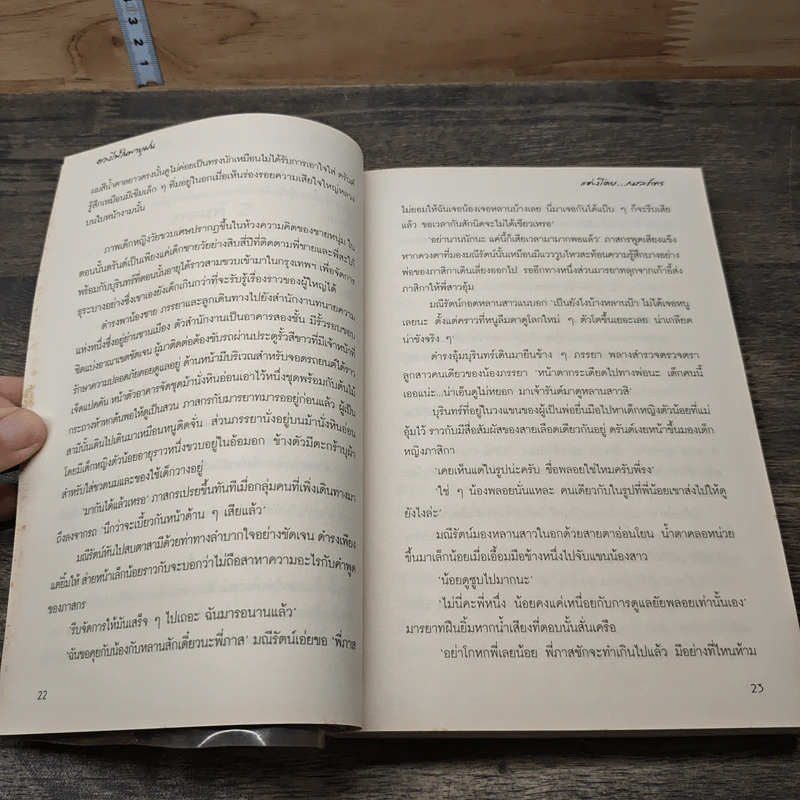 3
2
1
ดวงไฟในพายุฝน
ผมสีน้ำตาลยาวตรงนั้นดูไม่ค่อยเป็นทรงนักเหมือนไม่ได้รับการเอาใจใส่ ดรันต์
รู้สึกเหมือนมีเข็มเล็ก ๆ ทิ่มอยู่ในอกเมื่อเห็นร่องรอยความเสียใจใหญ่หลวง
บนใบหน้างามนั้น
ภาพเด็กหญิงวัยขวบเศษปรากฏขึ้นในห้วงความคิดของชายหนุ่ม ใน
ตอนนั้นดรันต์เป็นเพียงแค่เด็กชายวัยย่างสิบสี่ปีที่ติดตามพี่ชายและพี่สะใภ้
พร้อมกับบุรินทร์ที่ตอนนั้นอายุได้ราวสามขวบเข้ามาในกรุงเทพฯ เพื่อจัดการ
ธุระบางอย่างซึ่งเขาเองยังเด็กเกินกว่าที่จะรับรู้เรื่องราวของผู้ใหญ่ได้
ดำรงพาน้องชาย ภรรยาและลูกเดินทางไปยังสำนักงานทนายความ
แห่งหนึ่งซึ่งอยู่ย่านชานเมือง ตัวสำนักงานเป็นอาคารสองชั้น มีรั้วรอบขอบ
ชิดแบ่งอาณาเขตชัดเจน ผู้มาติดต่อต้องขับรถผ่านประตูรั้วสีขาวที่มีเจ้าหน้าที่
รักษาความปลอดภัยคอยดูแลอยู่ ด้านหน้ามีบริเวณสำหรับจอดรถยนต์ได้ราว
เจ็ดแปดคัน หน้าตัวอาคารจัดชุดม้านั่งหินอ่อนเอาไว้หนึ่งชุดพร้อมกับต้นไม้
กระถางห้าหกต้นพอให้ดูเป็นสวน ภาสกรกับมารยาทมารออยู่ก่อนแล้ว ผู้เป็น
สามีนั้นเดินไปเดินมาเหมือนหงุดหงิด ส่วนภรรยานั่งอยู่บนม้านั่งหินอ่อน
โดยมีเด็กหญิงตัวน้อยอายุราวหนึ่งขวบอยู่ในอ้อมอก ข้างตัวมีตะกร้าบุผ้า
สำหรับใส่ขวดนมและของใช้เด็กวางอยู่
'มากันได้แล้วเหรอ' ภาสกรเปรยขึ้นทันทีเมื่อกลุ่มคนที่เพิ่งเดินทางมา
ถึงลงจากรถ 'นึกว่าจะเบี้ยวกันหน้าด้าน ๆ เสียแล้ว'
มณีรัตน์หันไปสบตาสามีด้วยท่าทางลำบากใจอย่างชัดเจน ดำรงเพียง
แต่ยิ้มให้ ส่ายหน้าเล็กน้อยราวกับจะบอกว่าไม่ถือสาหาความอะไรกับคำพูด
ของภาสกร
'รีบจัดการให้มันเสร็จ ๆ ไปเถอะ ฉันมารอนานแล้ว'
'ฉันขอคุยกับน้องกับหลานสักเดี๋ยวนะพี่ภาส' มณีรัตน์เอ่ยขอ 'พี่ภาส
22
แต่งโดย...กมลภัทร
ไม่ยอมให้ฉันเจอน้องเจอหลานบ้างเลย นี่มาเจอกันได้แป๊บ ๆ ก็จะรีบเสีย
แล้ว ขอเวลากันสักนิดจะไม่ได้เชียวเหรอ'
'อย่านานนักนะ แค่นี้ก็เสียเวลามามากพอแล้ว' ภาสกรพูดเสียงแข็ง
หากดวงตาที่มองมณีรัตน์นั้นเหมือนมีแวววูบไหวสะท้อนความรู้สึกบางอย่าง
พ่อของภาสิกาเดินเลี่ยงออกไป รออีกทางหนึ่งส่วนมารยาทลุกจากเก้าอี้ส่ง
ภาสิกาให้พี่สาวอุ้ม
มณีรัตน์กอดหลานสาวแนบอก 'เป็นยังไงบ้างหลานป้า ไม่ได้เจอหนู
เลยนะ ตั้งแต่คราวที่หนูลืมตาดูโลกใหม่ ๆ ตัวโตขึ้นเยอะเลย น่าเกลียด
น่าชังจริง ๆ'
ดำรงอุ้มบุรินทร์เดินมายืนข้าง ๆ ภรรยา พลางสำรวจตรวจตรา
ลูกสาวคนเดียวของน้องภรรยา 'หน้าตากระเดียดไปทางพ่อนะ เด็กคนนี้
เออแน่ะ...น่าเอ็นดูไม่หยอก มาเจ้ารันต์มาดูหลานสาวสิ'
บุรินทร์ที่อยู่ในวงแขนของผู้เป็นพ่อยื่นมือไปหาเด็กหญิงตัวน้อยที่แม่
อุ้มไว้ ราวกับมีสื่อสัมผัสของสายเลือดเดียวกันอยู่ ดรันต์เงยหน้าขึ้นมองเด็ก
หญิงภาสิกา
'เคยเห็นแต่ในรูปน่ะครับ ชื่อพลอยใช่ไหมครับพี่รง'
'ใช่ ๆ น้องพลอยนั่นแหละ คนเดียวกับในรูปที่พี่น้อยเขาส่งไปให้ดู
ยังไงล่ะ'
มณีรัตน์มองหลานสาวในอกด้วยสายตาอ่อนโยน น้ำตาคลอหน่วย
ขึ้นมาเล็กน้อยเมื่อเอื้อมมือข้างหนึ่งไปจับแขนน้องสาว
'น้อยดูซูบไปมากนะ'
'ไม่นี่คะพี่หนึ่ง น้อยคงแค่เหนื่อยกับการดูแลยัยพลอยเท่านั้นเอง'
มารยาทฝืนยิ้มหากน้ำเสียงที่ตอบนั้นสั่นเครือ
'อย่าโกหกพี่เลยน้อย พี่ภาสชักจะทำเกินไปแล้ว มีอย่างที่ไหนห้าม
23